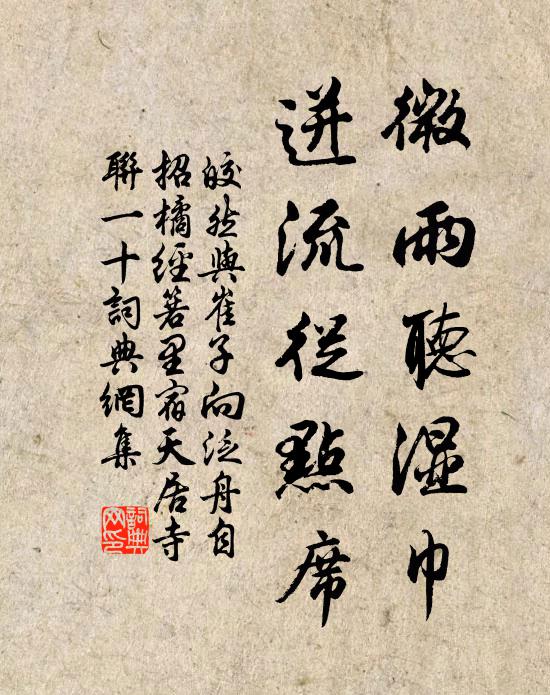 微雨聽濕巾
迸流從點席
皎然與崔子向泛舟自
招橘經箬里宿天居寺
聯一十詞典網集
詞典网印